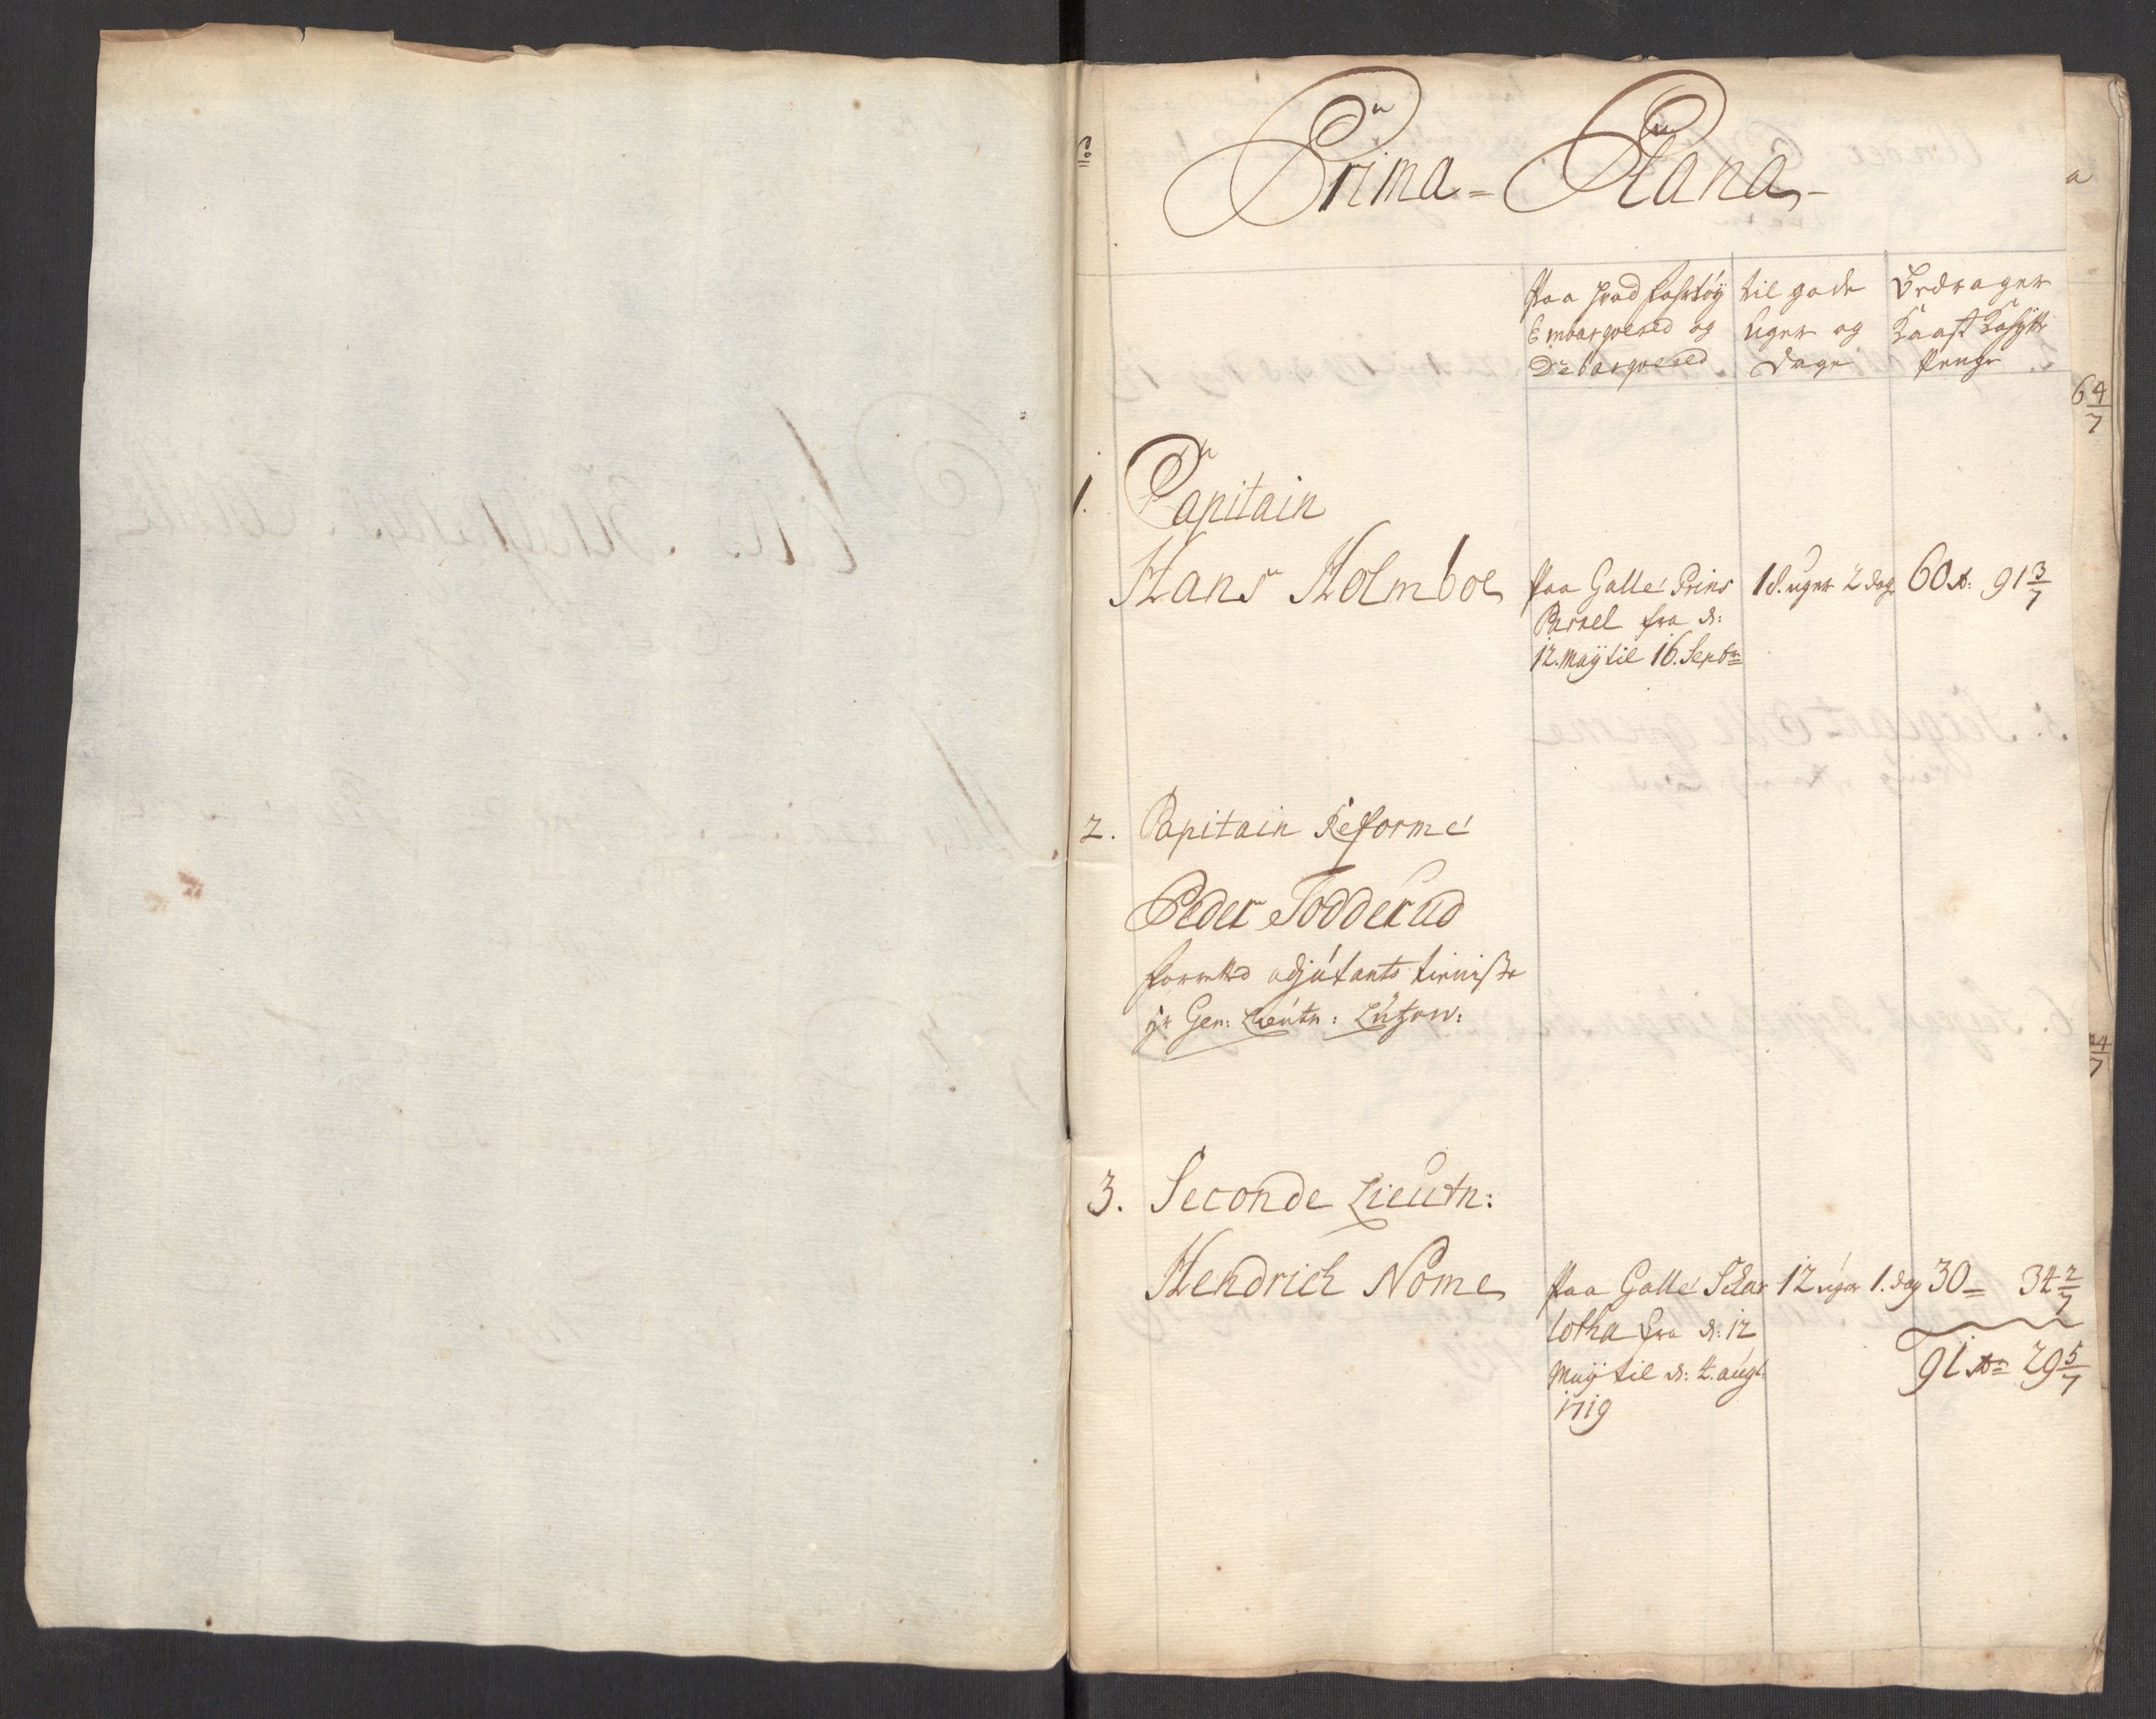 Prima - Plana -
Paa hvad fahrtöy
Embarqvered og
Debarqvered
til gode
Uger og
Dage
Bedrager
Kaast
Penge
1. Capitain
Hans Holmboe
Paa Galle: Prins
Carael fra d:
12. Maÿ til 16. Septr
18. uger 2 dag
60 rd: 91 3/7
2. Capitain Reformé
Peder Todderud
forretted adjutants tieniste
Gen: Lieutn: Lützow:
3. Seconde Lieutn:
Hendrich Nome
Paa Galle: Schar
lotha fra d: 12
Maÿ til d: 4. augt:
1719
12 uger 1. dag
30 = 34 2/7
91 rd = 29 5/7
6 4/7
4/7